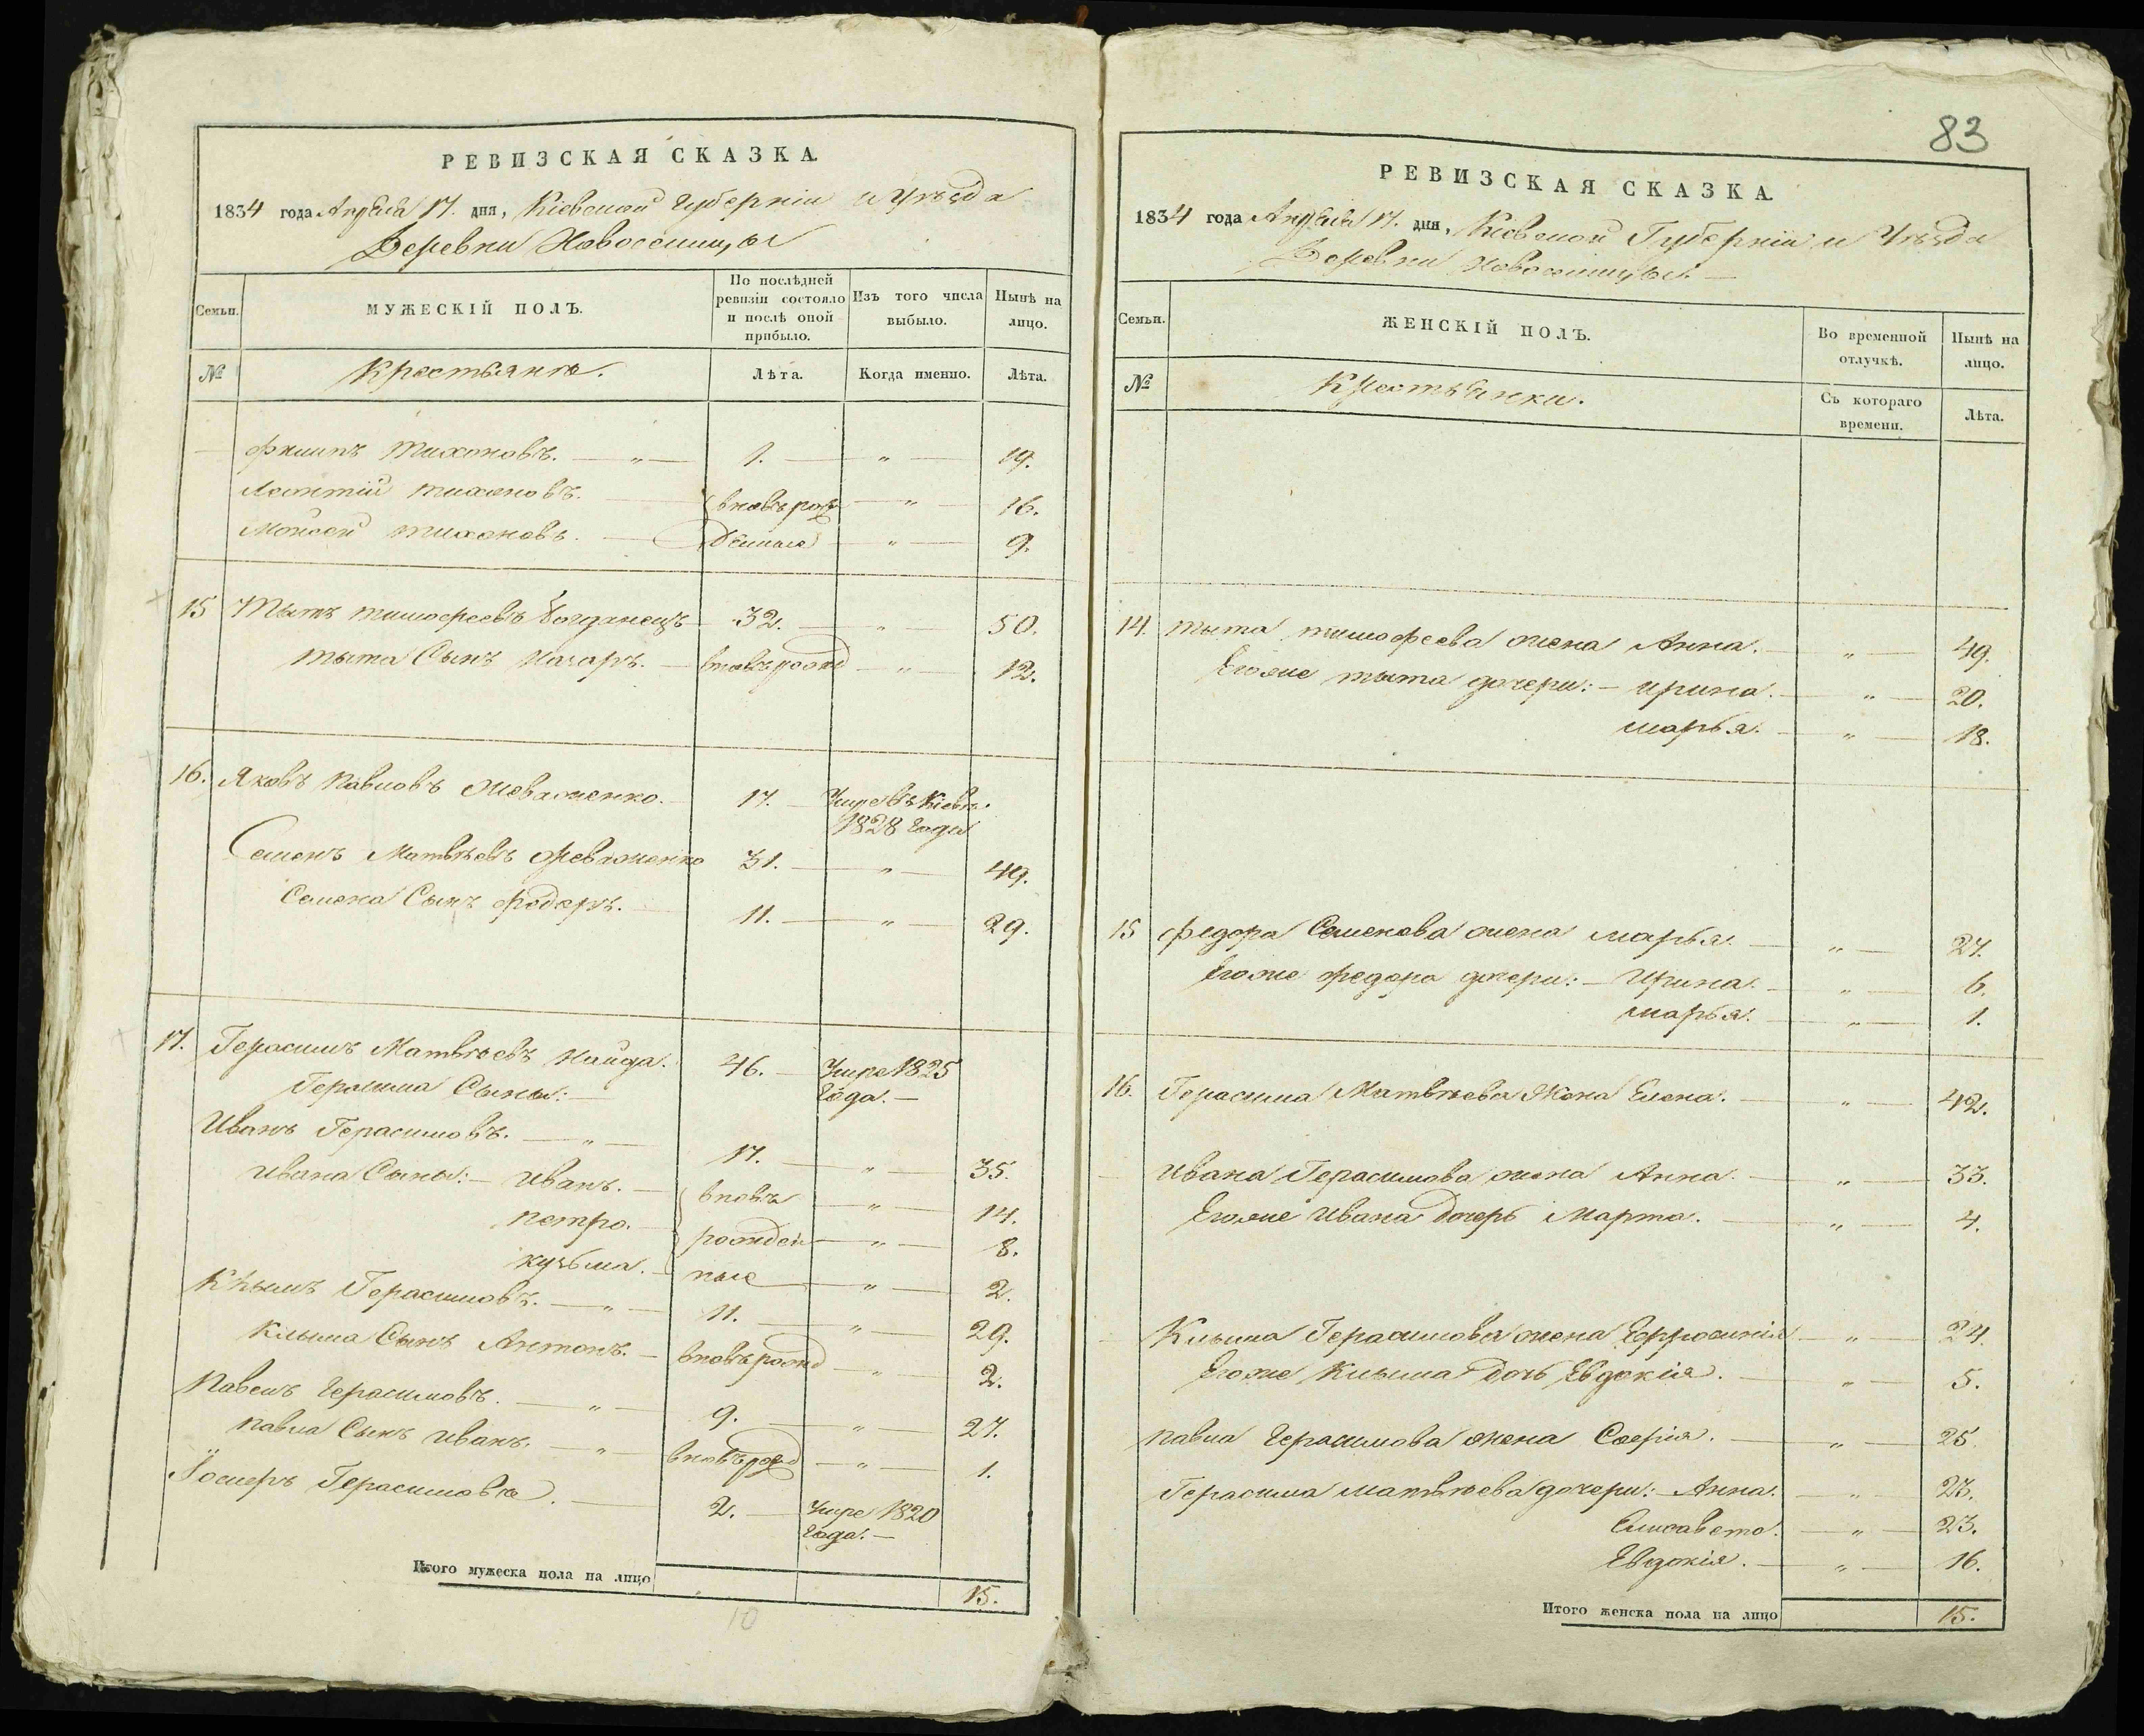 РЕВИЗСКАЯ СКАЗКА.
1834 года Апреля 17. дня, Кіевской Губерніи и Уѣзда
Деревни Новоселицы
Семьи. МУЖЕСКІЙ ПОЛЪ. По послѣдней ревизіи состояло и послѣ оной прибыло. Изъ того числа выбыло. Нынѣ на лицо.
№ Крестьяне. Лѣта. Когда именно. Лѣта.
Филипъ Тихоновъ. — „ — 1. — „ — 19.
Леонтій Тихоновъ. — вновь рож „ — 16.
Мойсей Тихоновъ. — денные „ — 9.
15 Тытъ Тимофеевъ Богданецъ 32. — „ — 50.
Тыта Сынъ Назаръ. — вновь рожд — „ — 12.
16. Яковъ Павловъ 17. — Умре въ Кіевѣ
1828 Года
Семенъ Матвѣевъ 31. — „ — 49.
Семена Сынъ Федоръ. — 11. — „ — 29.
17. Герасимъ Матвѣевъ Найда. 46. — Умре 1825
Герасима Сыны: — Года. —
Иванъ Герасимовъ. — „ — 17. — „ — 35.
Ивана Сыны: — Иванъ. — вновь — „ — 14.
Петро. — рожден — „ — 8.
Кузьма. — ные — „ — 2.
Клымъ Герасимовъ. — „ — 11. — „ — 29.
Клыма Сынъ Антонъ. — вновь рожд — „ — 2.
Павелъ Герасимовъ. — „ — 9. — „ — 27.
Павла Сынъ Иванъ. — „ — вновь рожд — „ — 1.
Іосифъ Герасимовъ. — 2. — Умре 1820
Года. —
Итого мужеска пола на лицо „ 15.
10
83
РЕВИЗСКАЯ СКАЗКА.
1834 года Апреля 17. дня, Кіевской Губерніи и Уѣзда
Деревни Новоселицы. —
Семьи. ЖЕНСКІЙ ПОЛЪ. Во временной отлучкѣ. Нынѣ на лицо.
№ Крестьянки. Съ котораго времени. Лѣта.
14. Тыта Тимофеева жена Анна. — „ — 49.
Егоже Тыта дочери: — Ирина. — „ — 20.
Марья. — „ — 18.
15 Федора Семенова жена Марья. — „ — 27.
Егоже Федора дочери: — Ирина. — „ — 6.
Марья. — „ — 1.
16. Герасима Матвѣева Жена Елена. — „ — 42.
Ивана Герасимова жена Анна. — „ — 33.
Егоже Ивана дочерь Марта. — „ — 4.
Клыма Герасимова жена Ефросинія — „ — 24.
Егоже Клыма дочь Евдокія. — „ — 5.
Павла Герасимова жена Софія. — „ — 25.
Герасима Матвѣева дочери: Анна. — „ — 23.
Елисавета. — „ — 23.
Евдокія. — „ — 16.
Итого женска пола на лицо 15.